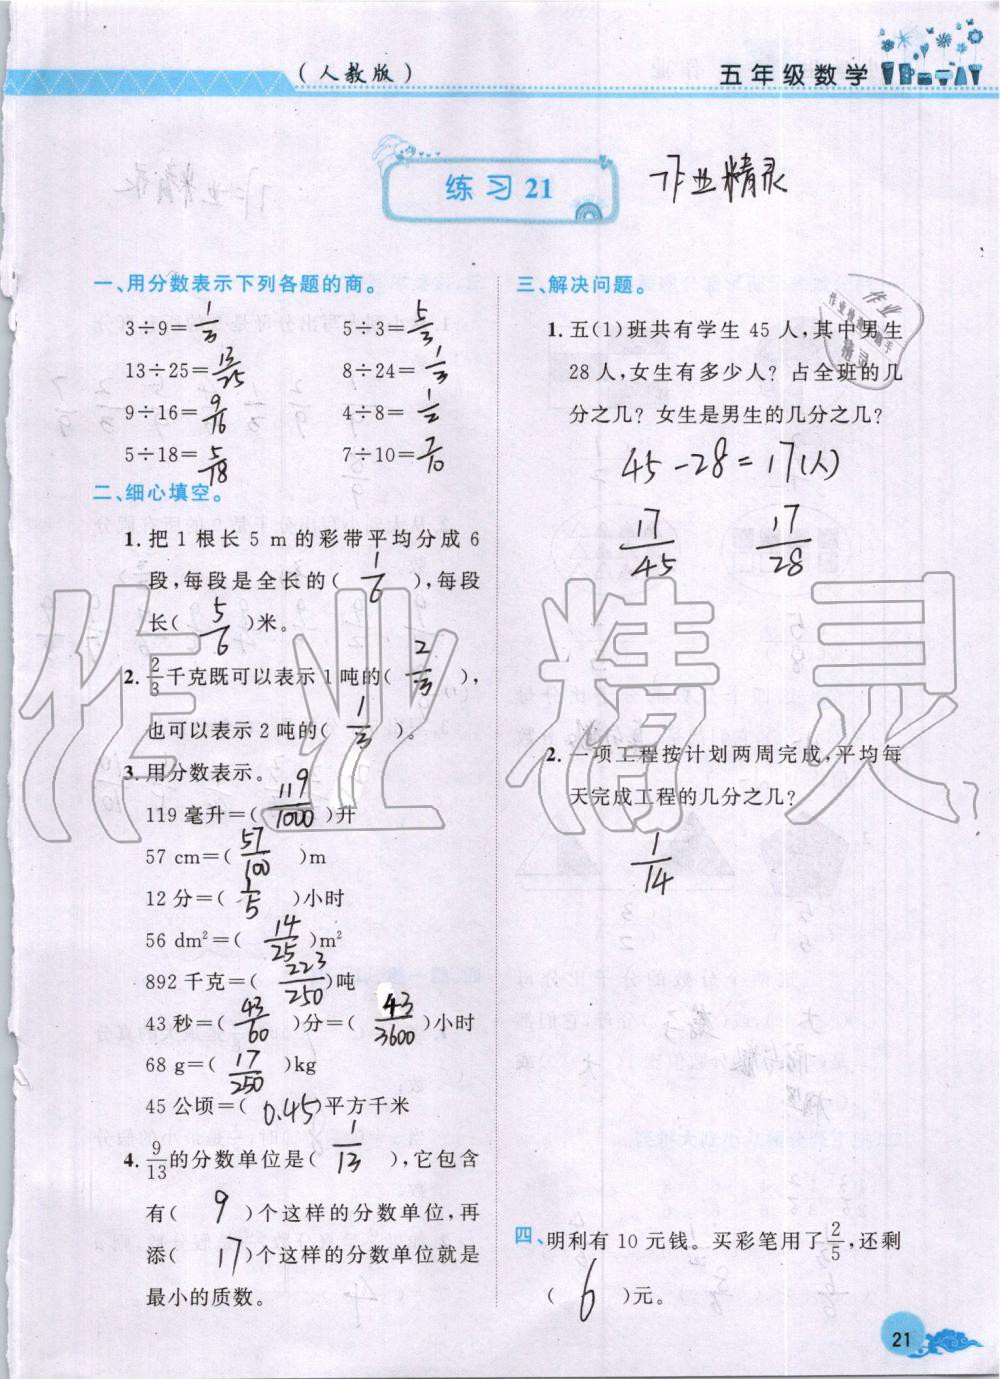 (人教版)
五年级数学
练习 21
作业精灵
一、用分数表示下列各题的商。
3÷9=1/3 5÷3=5/3
13÷25=13/25 8÷24=1/3
9÷16=9/16 4÷8=1/2
5÷18=5/18 7÷10=7/10
二、细心填空。
1. 把 1 根长 5 m 的彩带平均分成 6
段,每段是全长的( 1/6 ),每段
长( 5/6 )米。
2. 2/3千克既可以表示 1 吨的( 2/3 ),
也可以表示 2 吨的( 1/3 )。
3. 用分数表示。
119 毫升=( 119/1000 )升
57 cm=( 57/100 )m
12 分=( 1/5 )小时
56 dm²=( 14/25 )m²
892 千克=( 223/250 )吨
43 秒=( 43/60 )分=( 43/3600 )小时
68 g=( 17/250 )kg
45 公顷=( 0.45 )平方千米
4. 9/13的分数单位是( 1/13 ),它包含
有( 9 )个这样的分数单位,再
添( 17 )个这样的分数单位就是
最小的质数。
三、解决问题。
1. 五(1)班共有学生 45 人,其中男生
28 人,女生有多少人? 占全班的几
分之几? 女生是男生的几分之几?
45-28=17(人)
17/45 17/28
2. 一项工程按计划两周完成,平均每
天完成工程的几分之几?
1/14
四、明利有 10 元钱。买彩笔用了2/5,还剩
( 6 )元。
作业精灵
21